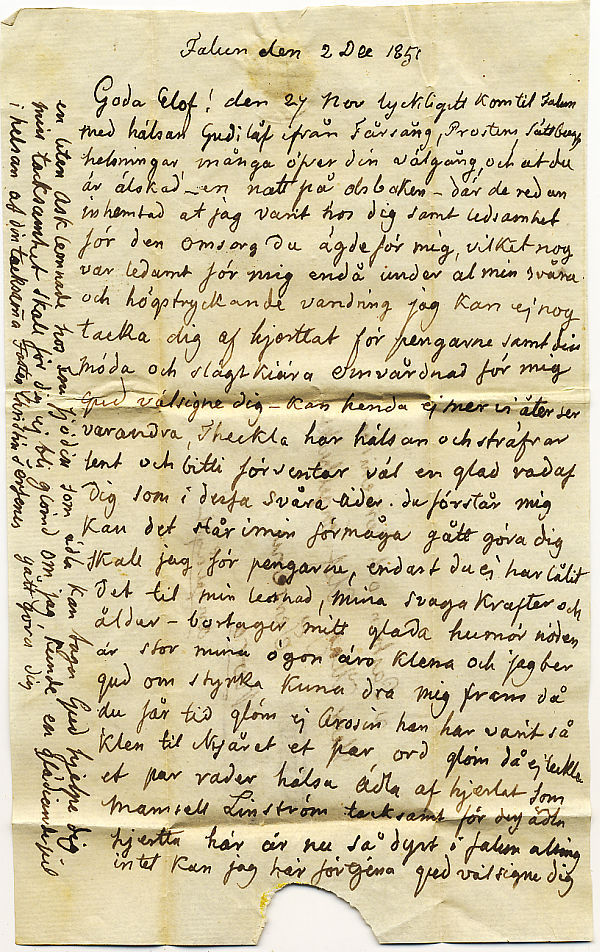 Falun den 2 Dec 1851
Goda Elof! den 27 Nov lyckligitt kom til Falun
med hälsan Gudilåf ifrån Fårsång, Prosten
helsningar många öfver din välgång, och at du
är älskad - en natt på olsbacken - där de redan
inhemtad at jag varit hos dig samt ledsamhet
för den omsorg du ägde för mig, vilket nog
var ledamt för mig endå under al min svåra
och högstryckande vandring jag kan ej nog
tacka dig af hjerttat för pengarne samt din
möda och slägtkiära omvårdnad för mig
gud välsigne dig - kan henda ej mer vi åter ser
varandra, Theckla har hälsan och sträfvar
lent och bitti förventar väl en glad rad af
dig som i dessa svåra tider. du förstår mig
kan det står i min förmåga gått göra dig
skall jag för pengarne, endast du ej har låtit
det til min lefnad, mina svaga krafter och
ålder - borttager mitt glada humör nöden
är stor mina ögon äro klena och jag ber
gud om styrka kuna dra mig fram då
du får tid glöm ej Arosin han har varit så
klen til Nyåret et par ord glöm då ej teckla
et par rader hälsa Ädla af hjertat som
Mamsell Linström tacksamt för dey ädla
hjertta här är nu så dyrt i falun alting
intet kan jag här förtjena gud välsigne dig
en liten ask lemnade hos som ädla kan taga Gud hjelpe dig
min tacksamhet skall för dig ej bli glömd om jag kunde en glädiande
i helsan af din tacksamma gått göra dig